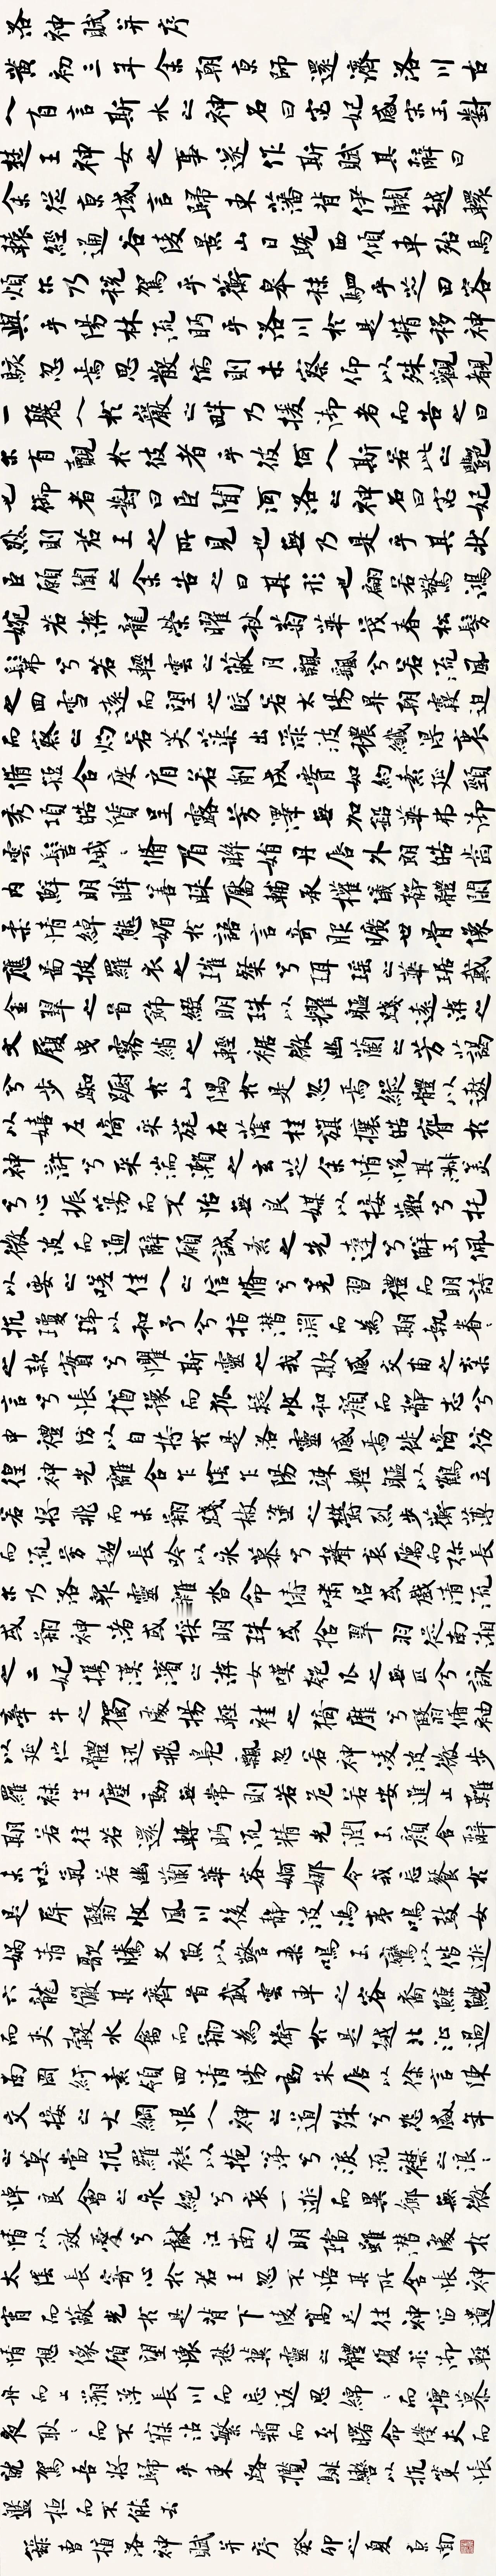 洛神賦并序
黄初三年余朝京師還濟洛川古
人有言斯水之神名曰宓妃感宋玉對
楚王神女之事遂作斯賦其辭曰
余從京域言歸東藩背伊闕越轘
轅經通谷陵景山日既西傾車殆馬
煩尔乃税駕乎蘅皋秣駟乎芝田容
與乎陽林流眄乎洛川於是精移神
駭忽焉思散俯則未察仰以殊觀覩
一麗人於巖之畔乃援御者而告之曰
尔有覿於彼者乎彼何人斯若此之豔
也御者對曰臣聞河洛之神名曰宓妃
然則君王之所見也無乃是乎其状
臣願聞之余告之曰其形也翩若驚鴻
婉若游龍榮曜秋菊華茂春松髣
髴兮若輕雲之蔽月飄飖兮若流風
之回雪遠而望之皎若太陽昇朝霞迫
而察之灼若芙蕖出渌波穠纖得衷
脩短合度肩若削成腰如約素延頸
秀項皓質呈露芳澤無加鉛華弗御
雲髻峨〻脩眉聯娟丹唇外朗皓齒
内鮮明眸善睞靨輔承權儀静體閑
柔情綽態媚於語言奇服曠世骨像
應圖披羅衣之璀粲兮珥瑶之華琚戴
金翠之首飾綴明珠以耀軀踐遠游之
文履曳霧綃之輕裾微幽蘭之芳藹
兮步踟躕於山隅於是忽焉縱體以遨
以嬉左倚采旄右蔭桂旗攘皓腕於
神滸兮采湍瀨之玄芝余情悦其淑美
兮心振蕩而不怡無良媒以接歡兮托
微波而通辭願誠素之先達兮解玉佩
以要之嗟佳人之信脩兮羌習禮而明詩
抗瓊珶以和予兮指潛淵而為期執眷〻
之款實兮懼斯靈之我欺感交甫之棄
言兮悵猶豫而狐疑收和顔而静志兮
申禮防以自持於是洛靈感焉徙倚彷
徨神光離合乍陰乍陽竦輕軀以鶴立
若將飛而未翔踐椒塗之郁烈步蘅薄
而流芳超長吟以永慕兮聲哀厲而彌長
尔乃衆靈雜沓命儔嘯侣或戲清流
或翔神渚或採明珠或拾翠羽從南湘
之二妃携漢濱之游女嘆匏瓜之無匹兮詠
牽牛之獨處揚輕袿之猗靡兮翳脩袖
以延佇體迅飛鳧飄忽若神凌波微步
羅襪生塵動無常則若危若安進止難
期若往若還轉眄流精光潤玉顔含辭
未吐氣若幽蘭華容婀娜令我忘餐於
是屏翳收風川後静波馮夷鳴鼓女
媧清歌騰文魚以警乘鳴玉鸞以偕逝
六龍儼其齊首載雲車之容裔鯨鯢踴
而夾轂水禽翔而為衛於是越北沚過
南岡紆素領回清陽動朱唇以徐言陳
交接之大綱恨人神之道殊兮怨盛年
之莫當抗羅袂以掩涕兮淚流襟之浪〻
悼良會之永絶兮哀一逝而異鄉無微
情以效愛兮獻江南之明璫雖潛處於
太陰長寄心於君王忽不悟其所舍悵神
宵而蔽光於是背下陵高足往神留遺
情想像顧望懷愁冀靈之體復形御輕
舟而上溯浮長川而忘返思綿〻而增慕
夜耿〻而不寐沾繁霜而至曙命僕夫而
就駕吾將歸乎東路攬騑轡以抗策悵
盤桓而不能去
錄曹植洛神賦并序癸卯之夏京南